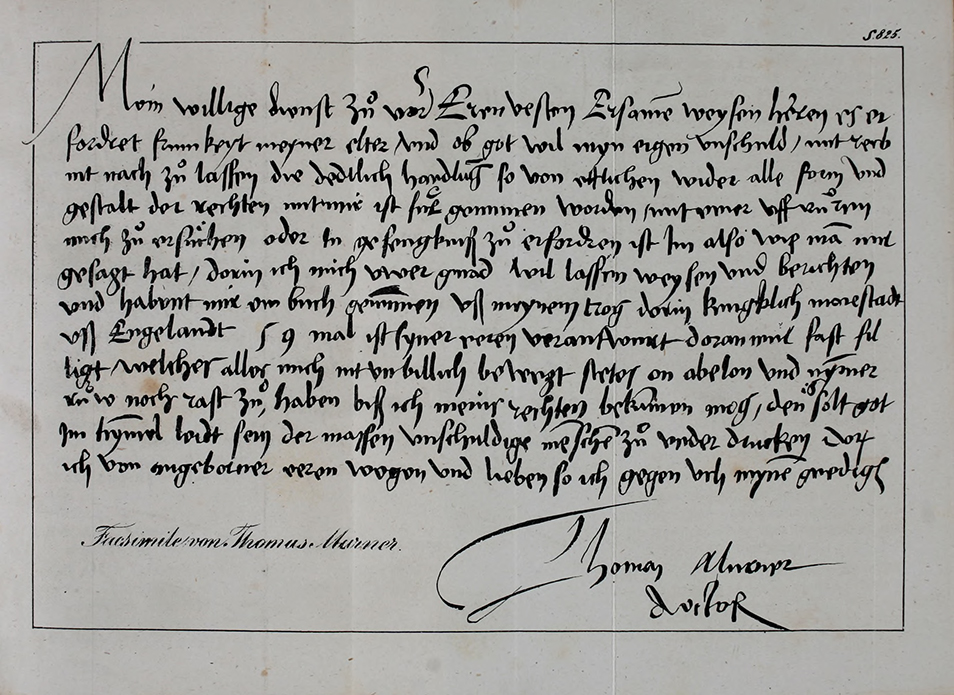 S. 825.
Mein willige dienst zů vor Erenvesten Ersamē weysen herren es er
fordret frumkeyt meyner elter / und ob got wil myn eigen unschuld / nit
nit nach zů lassen die dedtlich handlūg so von ettlichen wider alle form und
gestalt der rechten mit mir ist für genommen worden / mit einer uffrůr in
mich zů ersůchen oder in gefengkniß zů erfordren ist Im also wie mā mir
gesagt hat / dorin ich mich uwer gnad wil lassen weysen und berichten
und habent mir ein buch genummen uß meynem trog dorin kungklich maiestadt
uß Engelandt 59 mal ist syner eeren verantwurt doran mir fast fil
ligt / welches alles mich nit unbillich bewegt stetes on abelon und nymer
růw noch rast zů haben biß ich meins rechten bekumen mog / den es solt got
Im hymel leidt sein der massen unschuldige mēschē zů under drucken dorff
ich von angeborner eeren wegen und lieben so ich gegen uch mynē gnedigē
Facsimile von Thomas Murner.
Thomas Murner
doctor